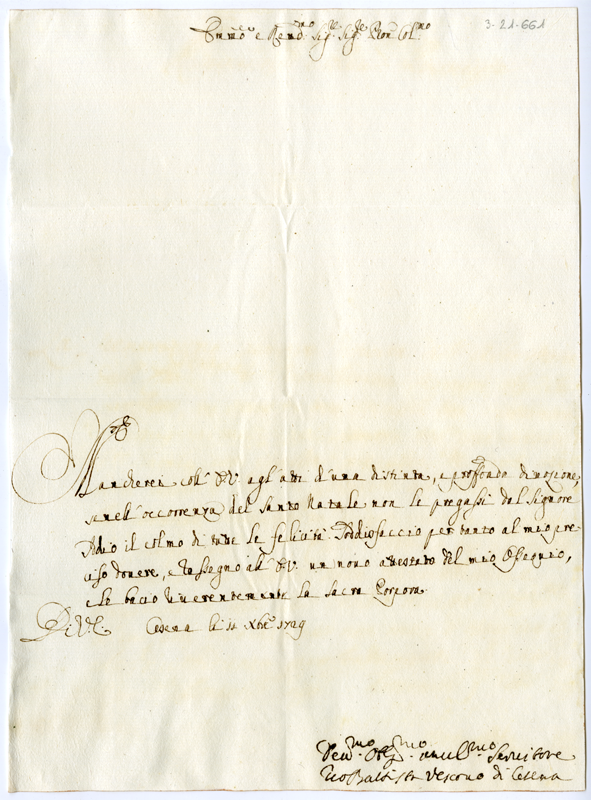 3-21-661
Em̃o e Rend.mo Sig.re Sig.re Pron Col.mo
Mancherei coll' E.V. agl' atti d'una distinta, e profonda divozione,
se nell' occorrenza del Santo Natale non le pregassi dal Signore
Iddio il colmo di tutte le felicità. Soddisfaccio per tanto al mio pre-
ciso dovere, e rassegno all' E.V. un novo attestato del mio Ossequio,
e le bacio riverentemente la Sacra Porpora.
Di V.E. Cesena li 11 Xbre 1729
Dev.mo Obl.mo umil.mo Servitore
Gio Battista Vescovo di Cesena